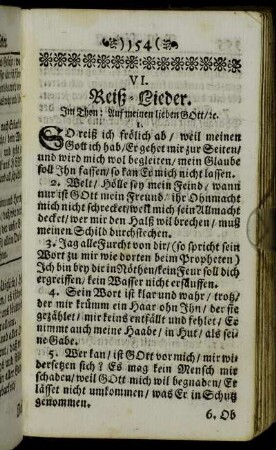 154
VI.
Reiß-Lieder.
Im Thon: Auf meinen lieben GOtt/ ꝛc.
1.
SO reiß ich frölich ab/ weil meinen
Gott ich hab/ Er gehet mir zur Seiten/
und wird mich wol begleiten/ mein Glaube
soll Ihn fassen/ so kan Er mich nicht lassen.
2. Welt/ Hölle sey mein Feind/ wann
nur ist GOtt mein Freund: ihr Ohnmacht
mich nicht schrecket/ weil mich sein Allmacht
decket/ wer mir den Halß wil brechen/ muß
meinen Schild durchstechen.
3. Jag alle Furcht von dir/ (so spricht sein
Wort zu mir wie dorten beim Propheten)
Ich bin bey dir in Nöthen/ kein Feur soll dich
ergreiffen/ kein Wasser nicht ersäuffen.
4. Sein Wort ist klar und wahr/ trotz/
der mir krümm ein Haar ohn Ihn/ der sie
gezählet/ mir keins entfällt und fehlet/ Er
nimmt auch meine Haabe/ in Hut/ als sei-
ne Gabe.
5. Wer kan/ ist GOtt vor mich/ mir wi-
dersetzen sich? Es mag kein Mensch mir
schaden/ weil GOtt mich wil begnaden/ Er
lässet nicht umkommen/ was Er in Schutz
genommen.
6. Ob